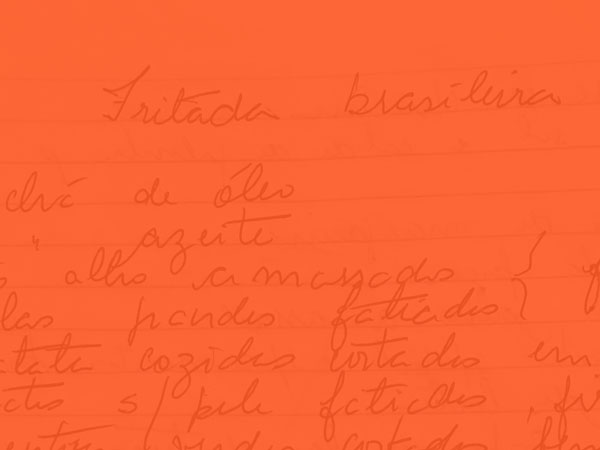 Fritada brasileira
chá de óleo
" azeite
alho amassados }
las grandes fatiadas
tata cozidas cortadas em
tes s/ pele fatiados, fri
verdes cortadas